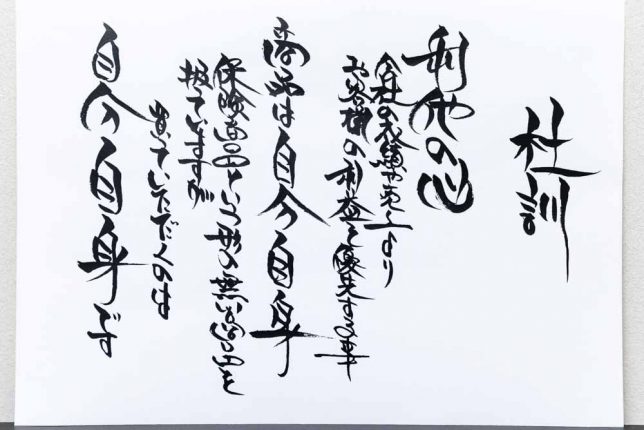 社訓
利他の心
会社の业績や売上より
お客様の利益を優先する事
商品は自分自身
保険商品という形の無い商品を
扱っていますが
買っていただくのは
自分自身です